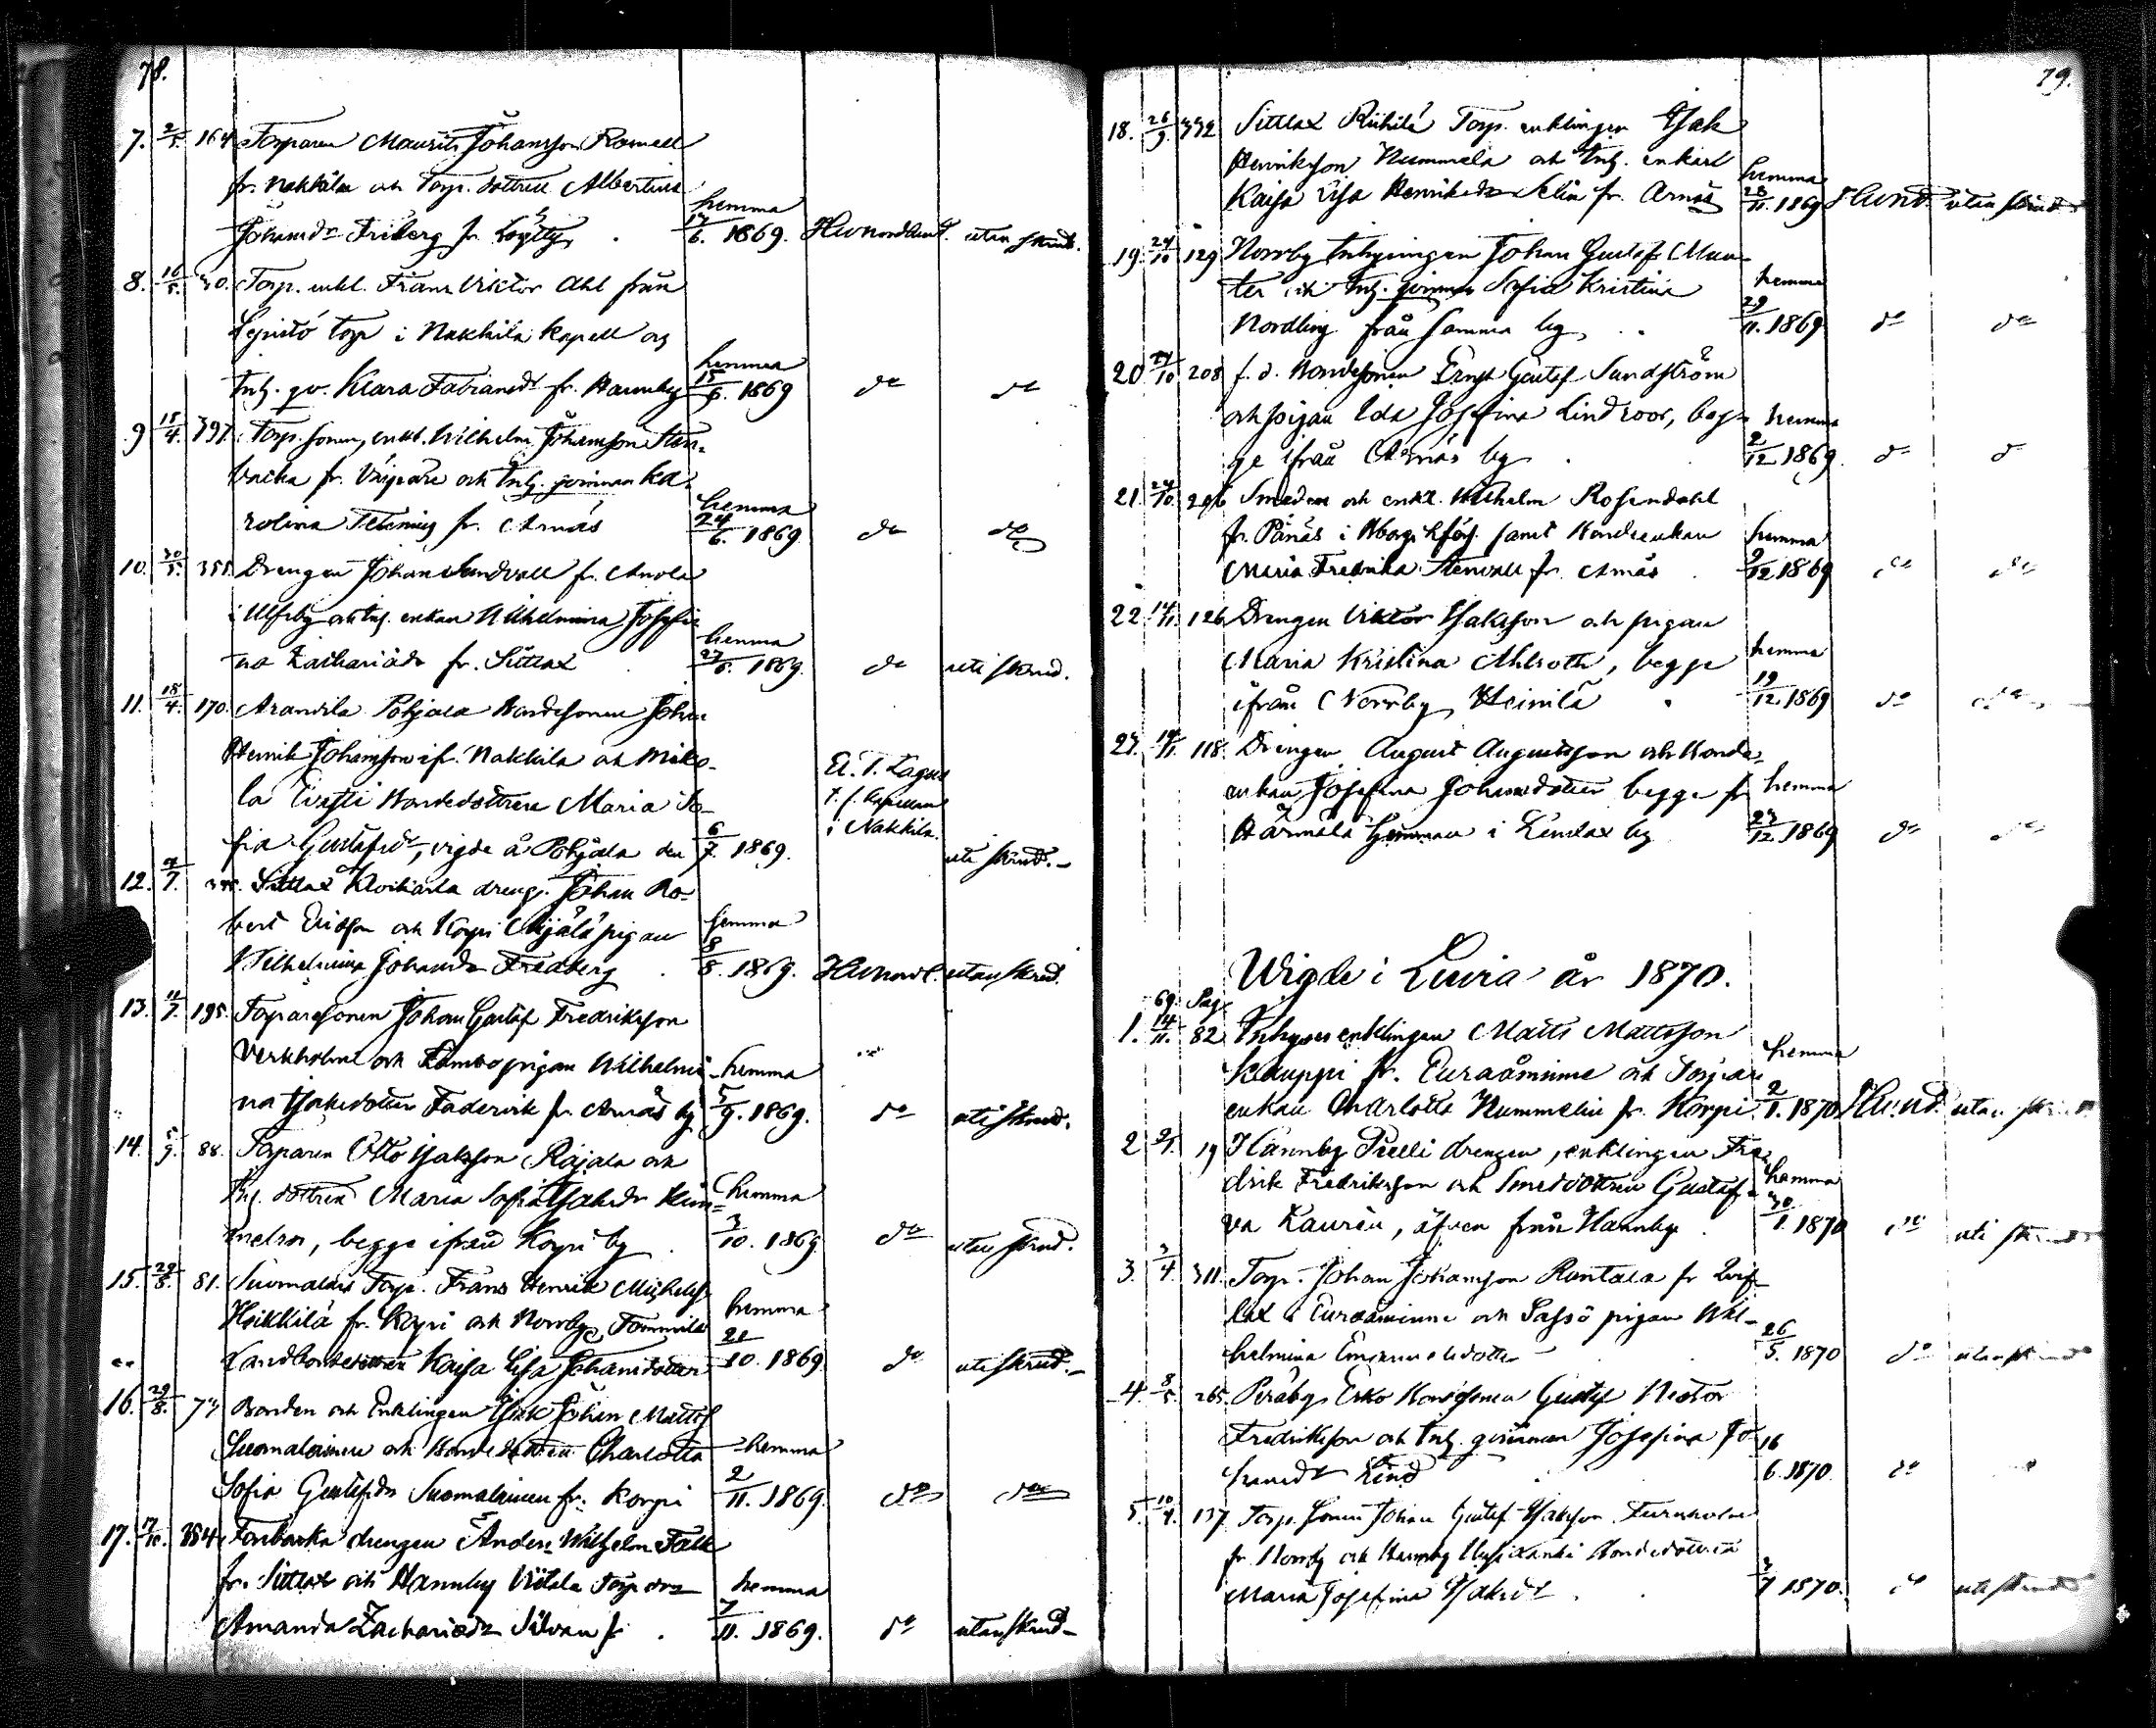 78.
7. 2/5. 164 Torparen Maurits Johansson Romell
fr. Nakkila och Torp. dottren Albertina
Johansdr Friberg fr. Löytty . hemma 17/6. 1869. utan skrud.
8. 16/5. 30. Torp. enkl. Frans Viktor Ahl från
Lepistö torp i Nakkila kapell och
Inh. qv. Klara Fabiansdr fr. Hannby hemma 15/6. 1869 do do
9 18/4. 397. Torp. sonen, enkl. Wilhelm Johansson
backa fr. och Inh. qvinnan Ka-
rolina fr. Arnäs hemma 24/6. 1869 do do
10. 30/5. 355. Drengen Johan Sundvall fr. Anola
i Ulfsby och Inh. enkan Wilhelmina Josefi-
na Zachariædr fr. Sittlax hemma 27/6. 1869. do uti skrud.
11. 18/4. 170. Arantila Pohjala Bondesonen Johan
Henrik Johansson ifr. Nakkila och Miko-
la Bondedottren Maria So-
fia Gustafsdr, vigde å Pohjala den 6/7. 1869. i Nakkila. uti skrud.-
12. 4/7. Sittlax dreng. Johan Ro-
bert Ericsson och Korpi pigan
Wilhelmina Johansdr Fredberg . hemma 8/8. 1869. utan skrud.
13. 11/7. 195. Torparesonen Johan Gustaf Fredriksson
Verkholm och pigan Wilhelmi-
na Isaksdotter Fadervik fr. Arnäs by hemma 5/9. 1869. do uti skrud.
14. 5/9. 88. Torparen Otto Isaksson Rajala och
Inh. dottren Maria Sofia Isaksdr
begge ifrån Korpi by . hemma 3/10. 1869 do utan skrud.
15. 29/8. 81. Suomalais Torp. Frans Henrik Michelss.
Heikkilä fr. Korpi och Norrby Tommila
Landbondedottren Kaisa Lisa Johansdotter hemma 21/10. 1869 do uti skrud.-
16. 29/8. 73 Bonden och Enklingen Isak Johan Matts.
Suomalainen och Bondedottren Charlotta
Sofia Gustafsdr Suomalainen fr. Korpi hemma 2/11. 1869. do do
17. 17/10. 354. drengen Anders Wilhelm Falk
fr. Sittlax och Hannby Torp dr
Amanda Zachariædr Silvan fr . hemma 7/11. 1869. do utan skrud-
79.
18. 26/9. 332 Sittlax Riihilä Torp. enklingen Isak
Henriksson Nummela och Inh. enkan
Kaisa Lisa Henriksdr Selin fr. Arnäs hemma 28/11. 1869 utan skrud
19. 24/10 129 Norrby Inhysingen Johan Gustaf Mun-
ter och Inh. qvinnan Sofia Kristina
Nordling från samma by . . hemma 29/11. 1869 do do
20 24/10 208 f. d. Bondesonen Ernst Gustaf Sundström
och pigan Eda Josefina Lindroos, beg-
ge ifrån Arnäs by . hemma 2/12 1869. do do
21. 24/10. 296 Smeden och enkl. Wilhelm Rosendahl
fr. Pånäs i samt Bondeenkan
Maria Fredrika Stenvall fr. Arnäs . hemma 9/12 1869 do do
22. 14/11. 126 Drengen Viktor Isaksson och pigan
Maria Kristina Ahlroth, begge
ifrån Norrby Heinilä . hemma 19/12. 1869 do do
23. 14/11. 118. Drengen August Augustsson och Bonde-
enkan Josefina Johansdotter begge fr
Härmälä hemman i Lemlax by hemma 27/12. 1869 do do
Wigde i Luvia år 1870.
69. Pag.
1. 14/11. 82 Inhyses enklingen Matts Mattsson
Kauppi fr. Euraåminne och Torpare
enkan Charlotta Nummelin fr. Korpi hemma 2/1. 1870. utan skrud
2 2/1. 19 Hannby Prelli drengen, enklingen Fre-
drik Fredriksson och Smeddottren Gustaf-
va Laurén, äfven från Hannby . hemma 30/1. 1870 do uti skrud
3. 3/4. 311. Torp. Johan Johansson Rantala fr
lax i Euraåminne och Sassö pigan Wil-
helmina Emanuelsdotter 26/5. 1870 do utan skrud
4 8/5. 265. Peräby Erko Bondsonen Gustaf Nestor
Fredriksson och Inh. qvinnan Josefina Jo-
hansdr Lind 16/6. 1870 do
5. 10/4. 137 Torp. sonen Johan Gustaf Isaksson Furuholm
fr. Norrby och Hannby Bondedottren
Maria Josefina Isaksdr . . 3/7 1870. do uti skrud